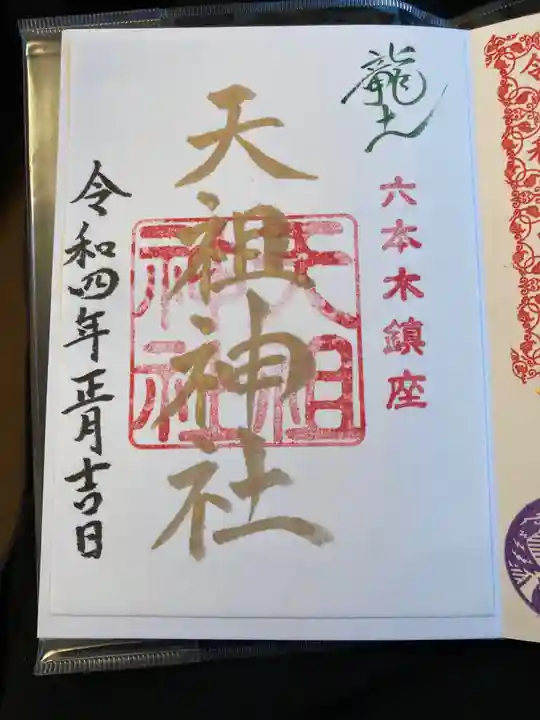 龍土
六本木鎮座
天祖神社
天祖神社
令和四年正月吉日
令和